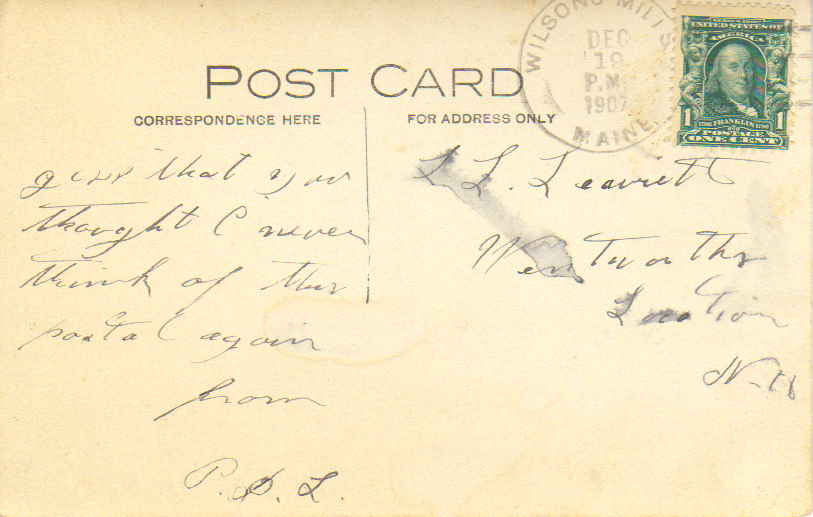 WILSONS MILLS
DEC
19
P.M.
1907
MAINE
UNITED STATES OF
AMERICA
1 1
FRANKLIN
POSTAGE
ONE CENT
POST CARD
CORRESPONDENCE HERE
FOR ADDRESS ONLY
gess that you
thought I never
think of this
postal again
from
P. D. L.
L L. Leavitt
Wentworths
Location
N-H